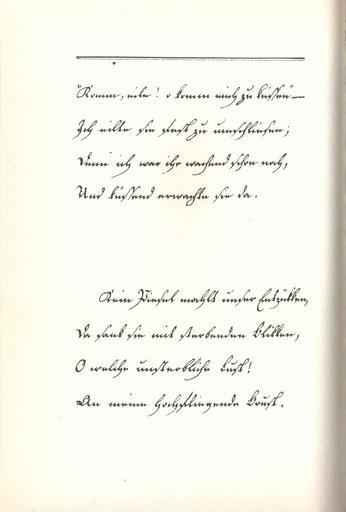 "Komm, eile! o komm mich zu küssen" —
Ich eilte sie fest zu umschließen;
Denn ich war ihr wachend schon nah,
Und küssend erwachte sie da.
Kein Pinsel mahlt unser Entzükken,
Da sank sie mit sterbenden Blikken,
O welche unsterbliche Lust!
An meine hochfliegende Brust.